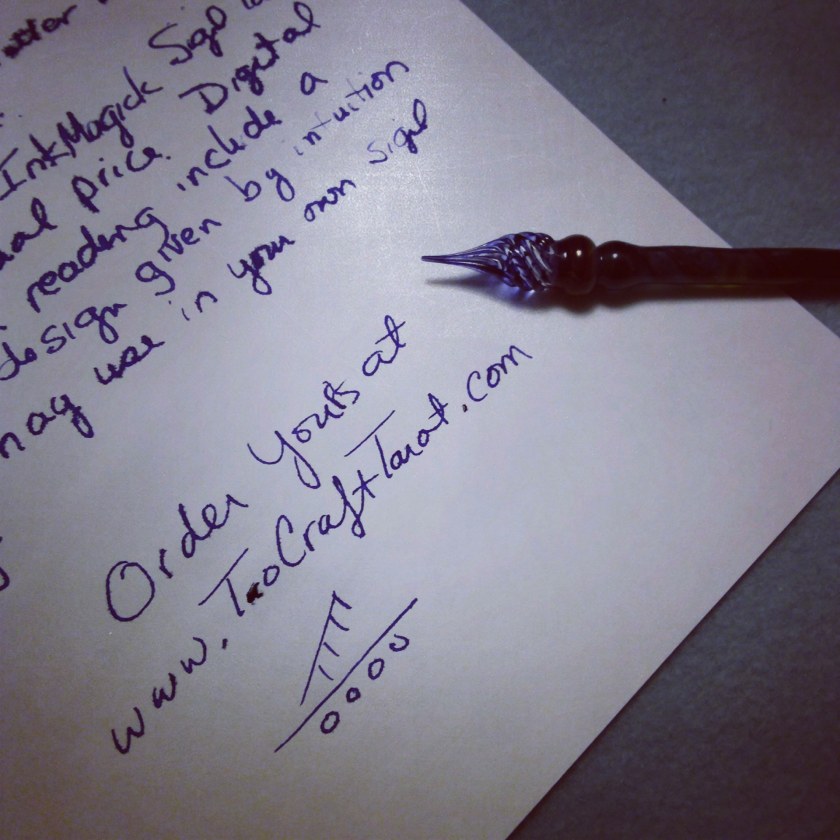 InkMagick Sigil
price. Digital
reading include a
design given by intuition
may use in your own sigil
Order Yours at
www.TaoCraftTarot.com